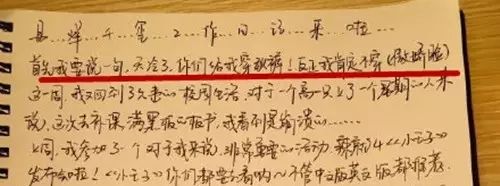 易…烊…千…玺…工作日记来啦
首先我要说一句，天冷了，你们给我穿秋裤！反正我肯定不穿(傲娇脸)
这一周，我又回到了久违的校园生活，对于一个高一只上了一个星期的人来
说，这次去补课，满黑板的板书，我看到是崩溃的……
上周，我参加了一个对于我来说，非常重要的活动，《小王子》
发布会啦！《小王子》你们都要去看哟~不管中文版英文版都推荐